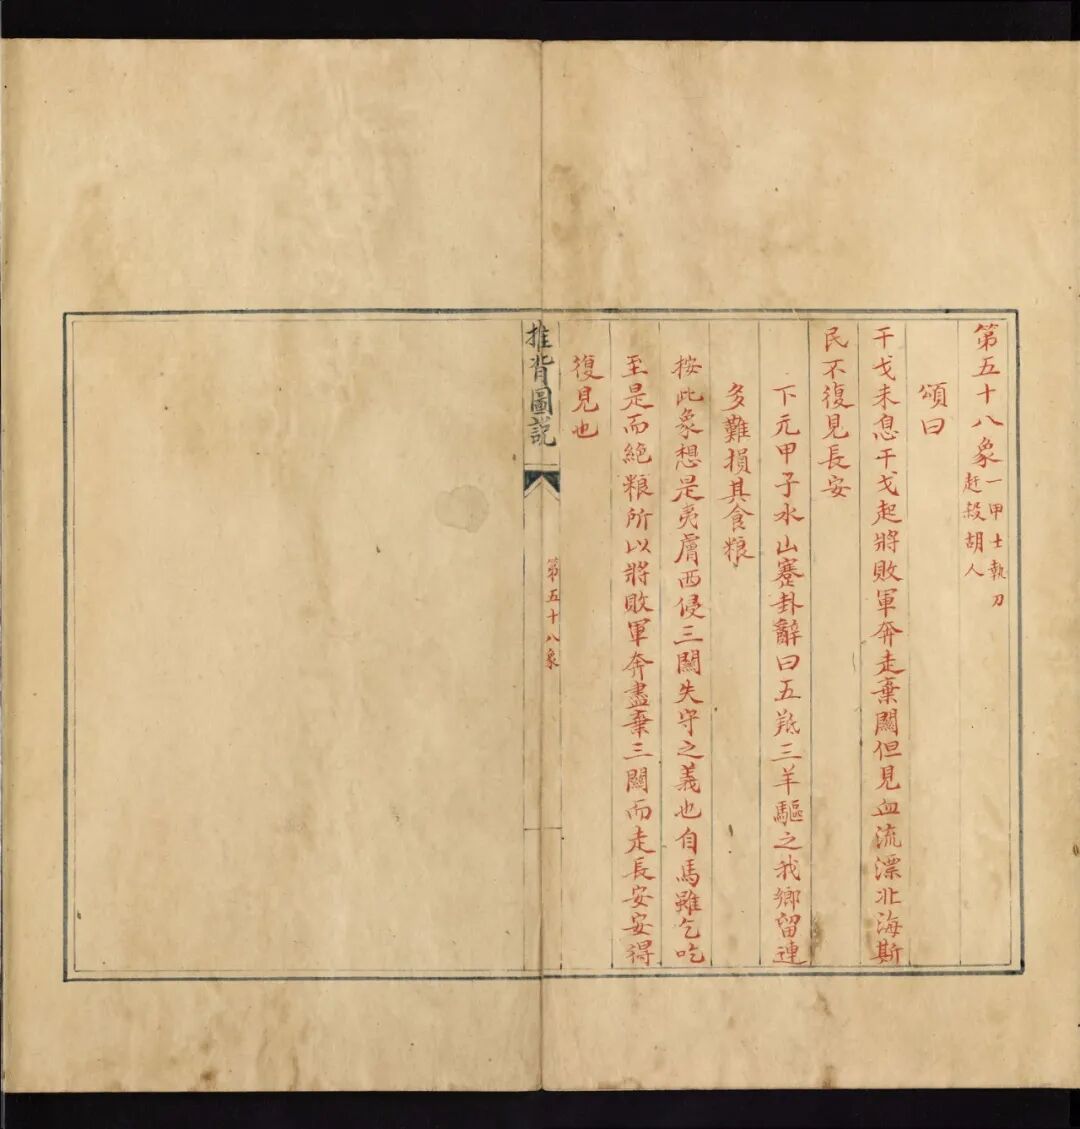 第五十八象 一甲士執刀
赶殺胡人
頌曰
干戈未息干戈起將敗軍奔走棄關但見血流漂北海斯
民不復見長安
下元甲子水山蹇卦辭曰五羝三羊驅之我鄉留連
多難損其食粮
按此象想是夷虜西侵三關失守之義也自馬雖乞吃
至是而絕粮所以將敗軍奔盡棄三關而走長安安得
復見也
推背圖說
第五十八象